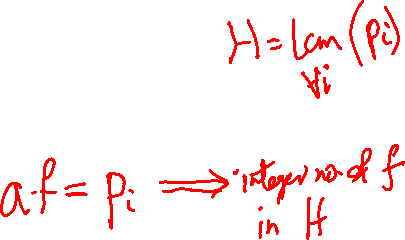 H = lcm (pi)
∀i
a.f = pi ⟹ integer no. of f
in H